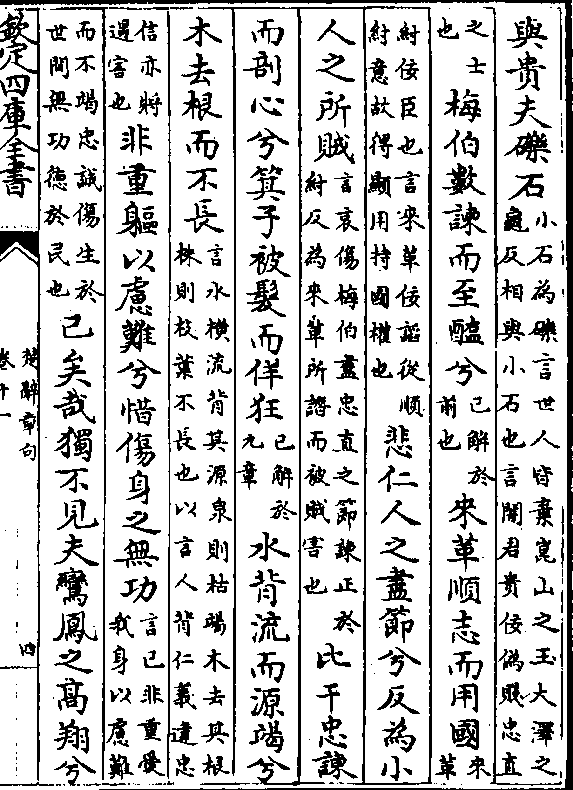 與貴夫礫石小石為礫言世人皆棄崑山之玉大澤之
龜反相與小石也言闇君貴佞偽賤忠直
之士
也梅伯數諫而至醢兮已解於
前也來革順志而用國來
革
紂佞臣也言來革佞諂從順
紂意故得顯用持國權也悲仁人之盡節兮反為小
人之所賊言哀傷梅伯盡忠直之節諫正於
紂反為來革所譖而被賊害也比干忠諫
而剖心兮箕子被髮而佯狂已解於
九章水背流而源竭兮
木去根而不長言水橫流背其源泉則枯竭木去其根
株則枝葉不長也以言人背仁義違忠
信亦將
遇害也非重軀以慮難兮惜傷身之無功言己非重愛
我身以慮難
而不竭忠誠傷生於
世間無功德於民也已矣哉獨不見夫鸞鳳之高翔兮
欽定四庫全書
楚辭章句
卷十一
四